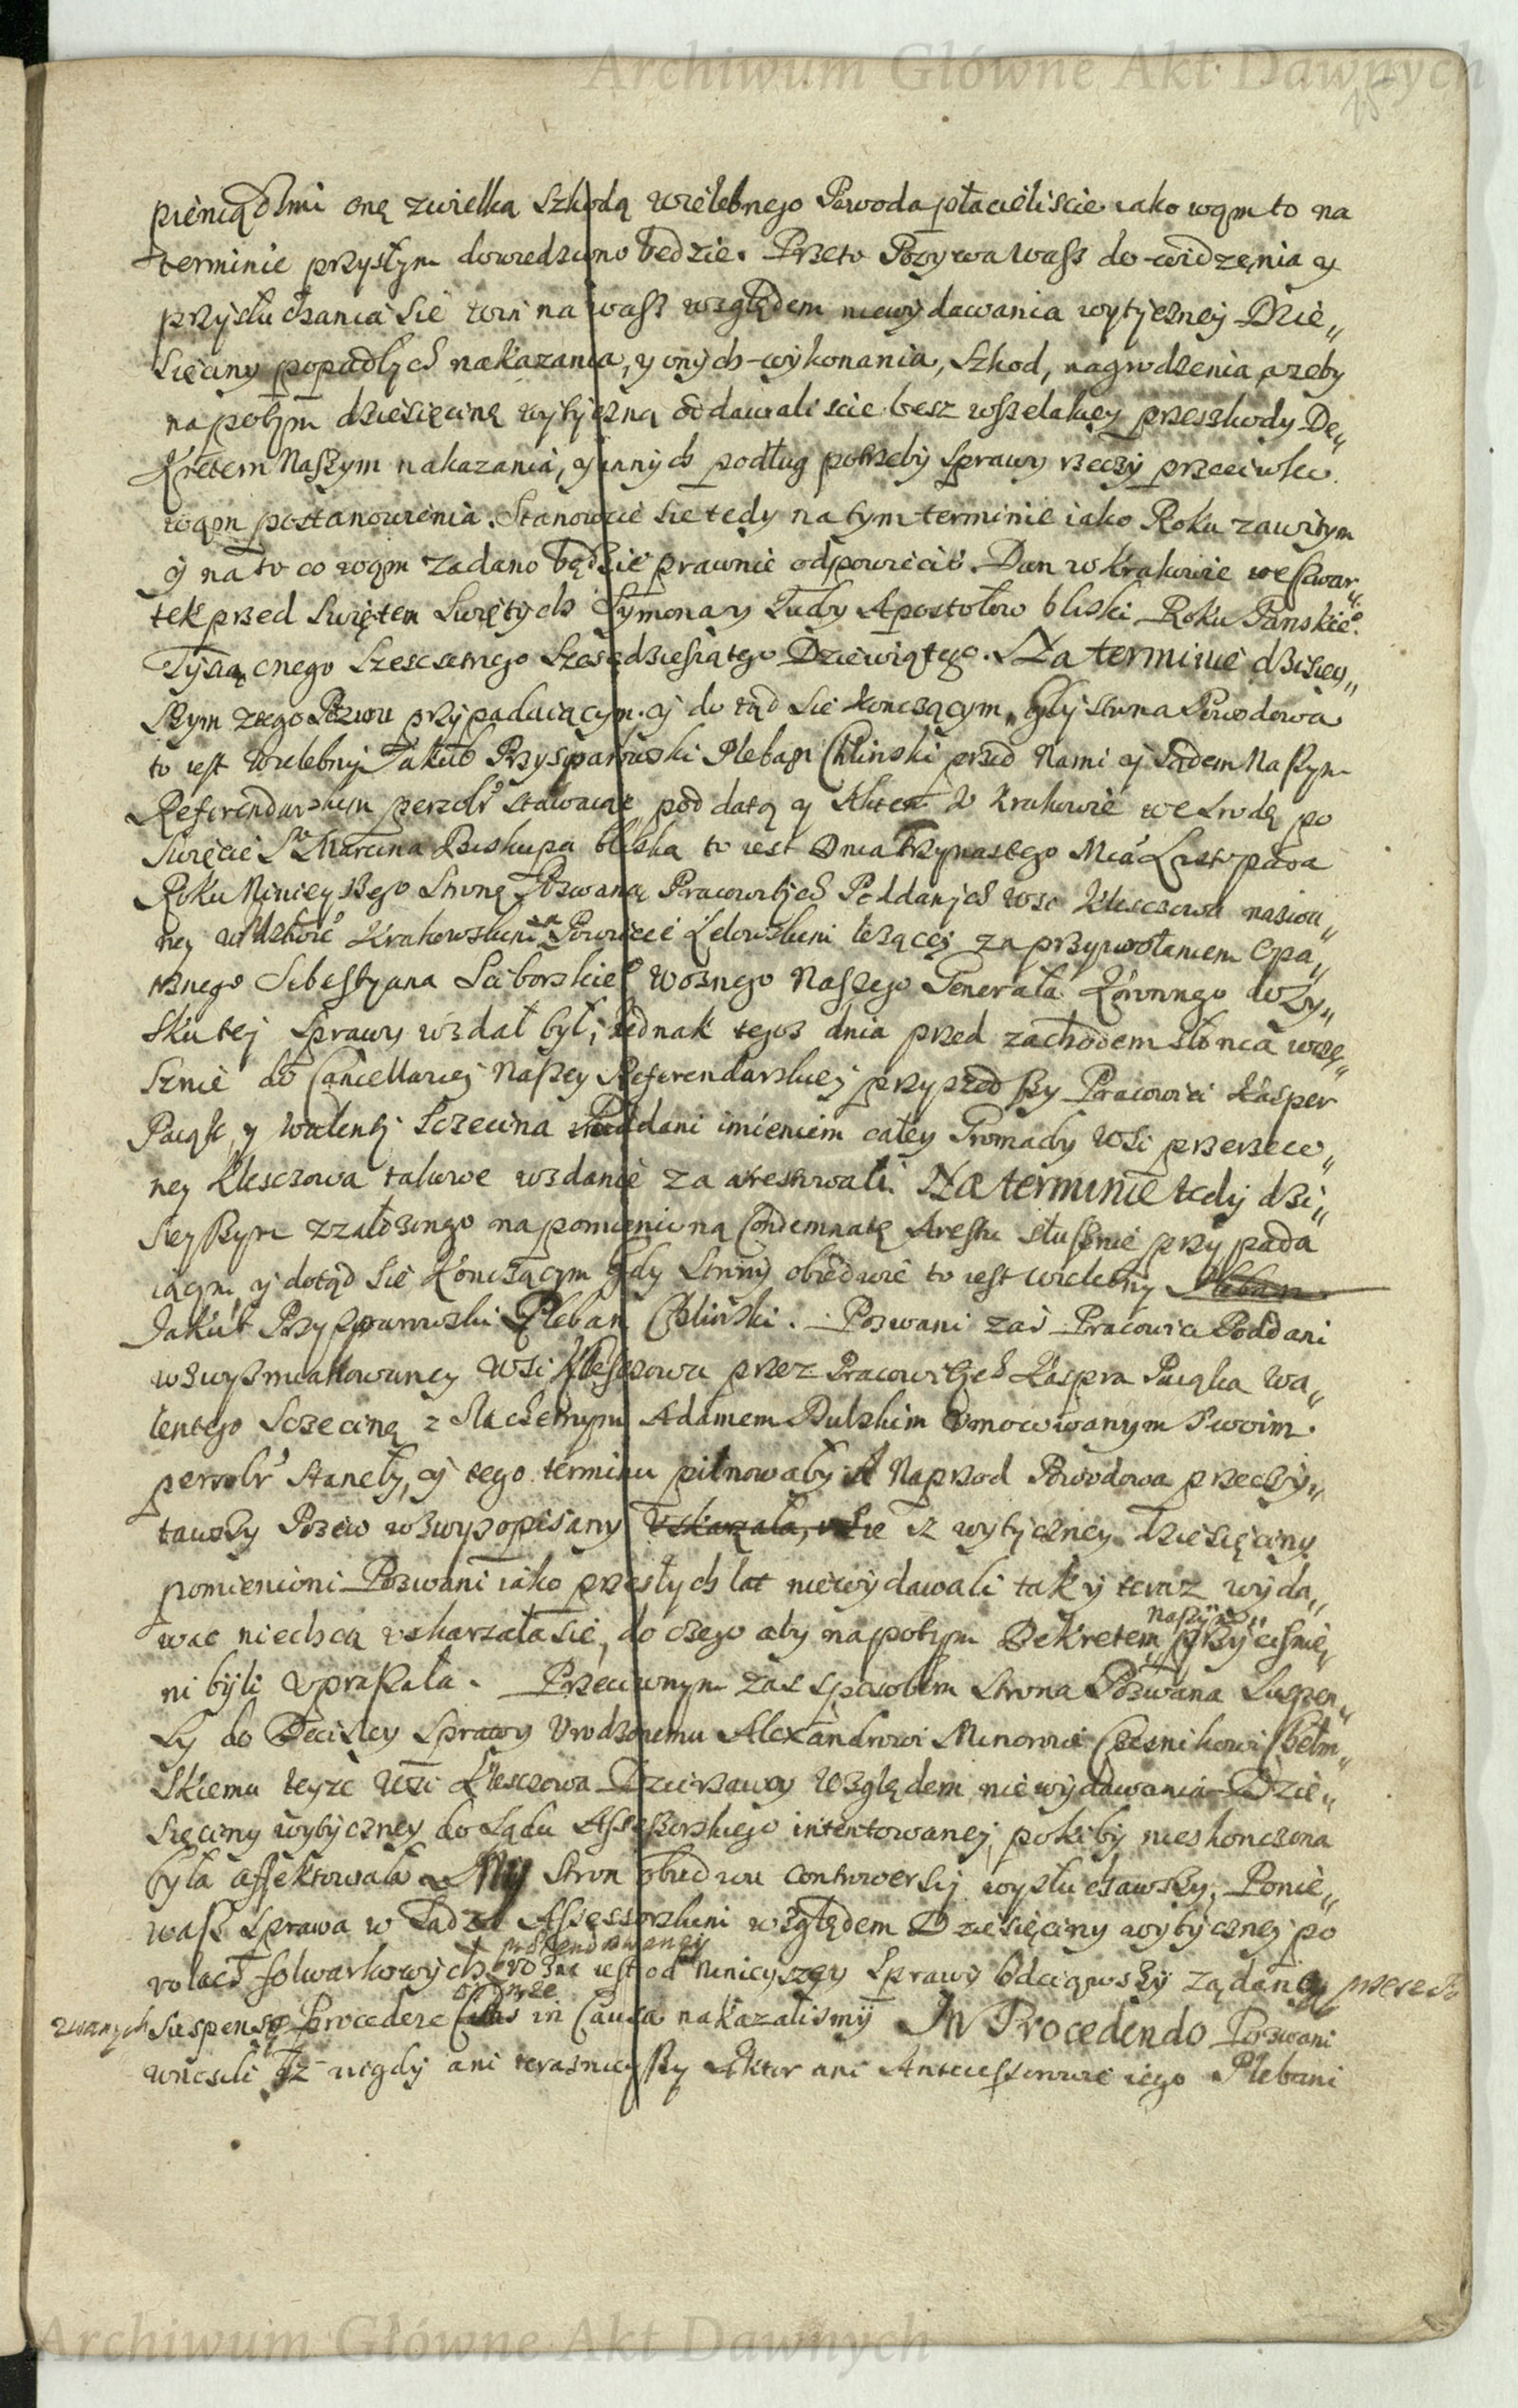 Archiwum Główne Akt Dawnych
15
pieniądzmi onę zwielką Szkodą wielebnego Powoda płacieliscie iako wąm to na
terminie przyszłym dowiedziono będzie. Przeto Pozywa wasz do widzęnia y
przysłuchania Sie win na wasz względem niewydawania wytyczney Dzie„
Sięciny popadłych nakazania, y onych wykonania, Szkod, nagrodzenia, azeby
napotym dziesięcinę wytyczną oddawaliscie besz wszelakiey przeszkody De„
Kretem Naszym nakazania, y innych podług potrzeby Sprawy rzeczy przeciwko
wąm postanowienia. Stanowcie sie tedy na tym terminie iako Roku zawitym
y na to co wąm zadano będzie prawnie odpowiecie. Dan w Krakowie we Czwar„
tek przed Swiętem Swiętych Symona y Judy Apostołow bliski Roku Panskieo.
Tysiącnego Szescsetnego Szescdziesiątego Dziewiątego. Na terminie dzisiey„
Szym ztego Pozwu przypadaiącym y do tąd Sie konczącym, gdy strona Powodowa
to iest Wielebny Jakub Przysparowski Pleban Chlinski przed Nami y Sądem Naszym
Referendarskim personr stawaiąc pod datą y Aktem w Krakowie we Srodę po
Swięcie So Marcina Biskupa bliską to iest Dnia Trzynastego Mca Listopada
Roku Ninieyszego Stronę Pozwaną Pracowitych Poddanych wsi Kleszczowa nazwa„
ney w Wdztwie Krakowskim a Powiecie Lelowskim leżącey za przywołaniem Opa„
trznego Sebestyana Sciborskieo Woznego Naszego Generała Koronnego w Zy„
sku tej Sprawy wzdał był, iednak tegoz dnia przed zachodem słonca wcze„
Snie do Cancellariej Naszey Referendarskiej przyszedszy Pracowici Kasper
Paiąk, y Walenty Sczecina Poddani imieniem całey Gromady Wsi przerzeco„
ney Kleszczowa takowe wzdanie za aresztowali. Na terminie tedy dzi„
Sieyszym zzałozonego na pomienioną Condemnatę Aresztu słusznie przypada
iącym, y dotąd Sie Konczącym gdy Strony obiedwie to iest wielebny Pleban
Jakub Przysparowski Pleban Chliński. Pozwani zaś Pracowici Poddani
wzwysz mianowaney Wsi Kleszczowa przez Pracowitych Kaspra Paiąka Wa„
lentego Sczecinę z Szlachetnym Adamem Dulskim Umocowanym Swoim.
personr Stanęły, y tego terminu pilnowały. A Naprzod Powodowa przeczy„
tawszy Pozew wzwyz opisany Uskarzała, sie iz wytyczney Dziesięciny
pomienioni Pozwani iako przeszłych lat niewydawali tak y teraz wyda„
wac niechcą uskarzała sie, do czego aby napotym Dekretem Naszym przyciśnię„
ni byli upraszała. Przeciwnym zas sposobem strona Pozwana Suspen„
Sy do Decisiey Sprawy Urodzonemu Alexandrowi Minorowi Czesnikowi Chełm„
Skiemu teyże Wsi Kleszczowa Dzierzawcy Względem niewydawania Dzie„
Sięciny wytyczney do Sądu Assessorskiego intentowanej, pokiby nieskonczona
była affektowała. My Stron obudwu Controwersij wysłuchawszy, Ponie„
wasz Sprawa w Sądzie Assessorskim względem Dziesięciny wytycznej po
rolach folwarkowych praetendowaney rożna iest od Ninieyszey Sprawy Odciąwszy ządaney przez Po
zwanych Suspensę Procedere in Causa nakazalismy In Procedendo Pozwani
wniesli Iż nigdy ani terasnieyszy Aktor ani Antecessorowie iego Plebani
Archiwum Główne Akt Dawnych